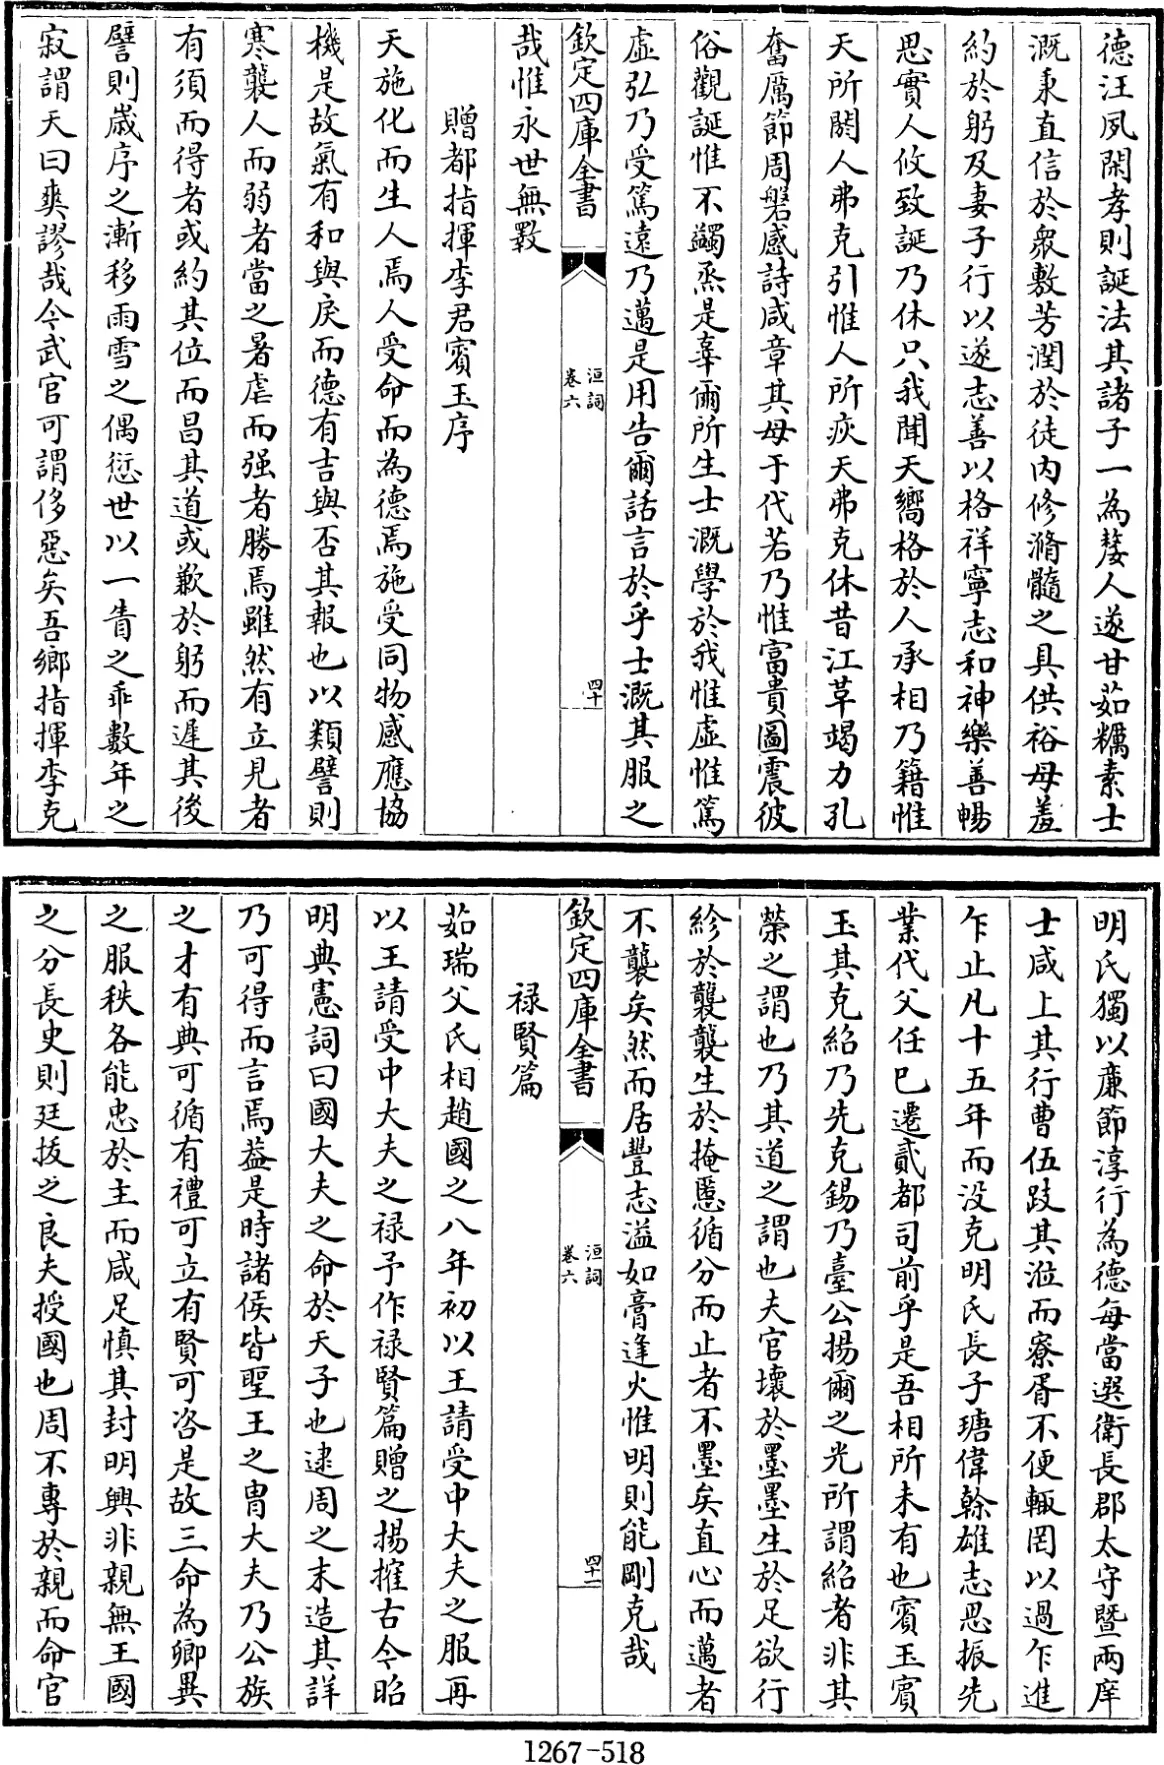 德汪夙閑孝則誕法其諸子一為嫠人遂甘茹糲素士
溉秉直信於衆敷芳潤於徒内修滫髓之具供裕母羞
約於躬及妻子行以遂志善以格祥寧志和神樂善暢
思實人攸致誕乃休只我聞天嚮格於人承相乃籍惟
天所閼人弗克引惟人所疚天弗克休昔江革竭力孔
奮厲節周磐感詩咸章其母于代若乃惟富貴圖震彼
俗觀誕惟不蠲烝是辜爾所生士溉學於我惟虛惟篤
虛弘乃受篤遠乃邁是用告爾話言於乎士溉其服之
欽定四庫全書
洹詞
卷六
四十
哉惟永世無斁
贈都指揮李君賓玉序
天施化而生人焉人受命而為德焉施受同物感應協
機是故氣有和與戾而德有吉與否其報也以類譬則
寒襲人而弱者當之暑虐而强者勝焉雖然有立見者
有須而得者或約其位而昌其道或歉於躬而遲其後
譬則歲序之漸移雨雪之偶愆世以一眚之乖數年之
寂謂天曰爽謬哉今武官可謂侈惡矣吾鄉指揮李克
明氏獨以廉節淳行為德每當選衛長郡太守暨兩庠
士咸上其行曹伍跂其涖而寮胥不便輙罔以過乍進
乍止凡十五年而没克明氏長子瑭偉榦雄志思振先
業代父任巳遷貳都司前乎是吾相所未有也賓玉賓
玉其克紹乃先克錫乃臺公揚爾之光所謂紹者非其
榮之謂也乃其道之謂也夫官壞於墨墨生於足欲行
紾於襲襲生於掩慝循分而止者不墨矣直心而邁者
不襲矣然而居豐志溢如膏逢火惟明則能剛克哉
欽定四庫全書
洹詞
卷六
四十一
祿賢篇
茹瑞父氏相趙國之八年初以王請受中大夫之服再
以王請受中大夫之祿予作祿賢篇贈之揚搉古今昭
明典憲詞曰國大夫之命於天子也逮周之末造其詳
乃可得而言焉葢是時諸侯皆聖王之胄大夫乃公族
之才有典可循有禮可立有賢可咨是故三命為卿異
之服秩各能忠於主而咸足慎其封明興非親無王國
之分長史則廷拔之良夫授國也周不專於親而命官
1267-518